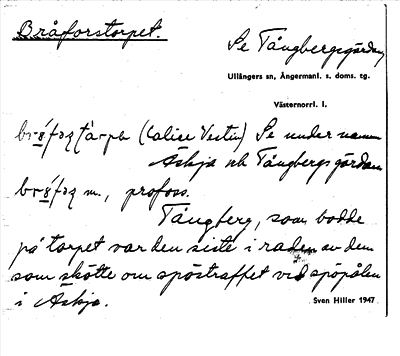 Bråforstorpet.
Se Tångbergsgården
Ullångers sn, Ångermanl. s. doms. tg.
Västernorrl. l.
(Calise Vestin) Se under namn
Askja och Tångbergsgården
m., profoss.
Tångberg, som bodde
på torpet var den siste i raden av dem
som skötte om spöstraffet vid spöpålen
i Askja.
Sven Hiller 1947